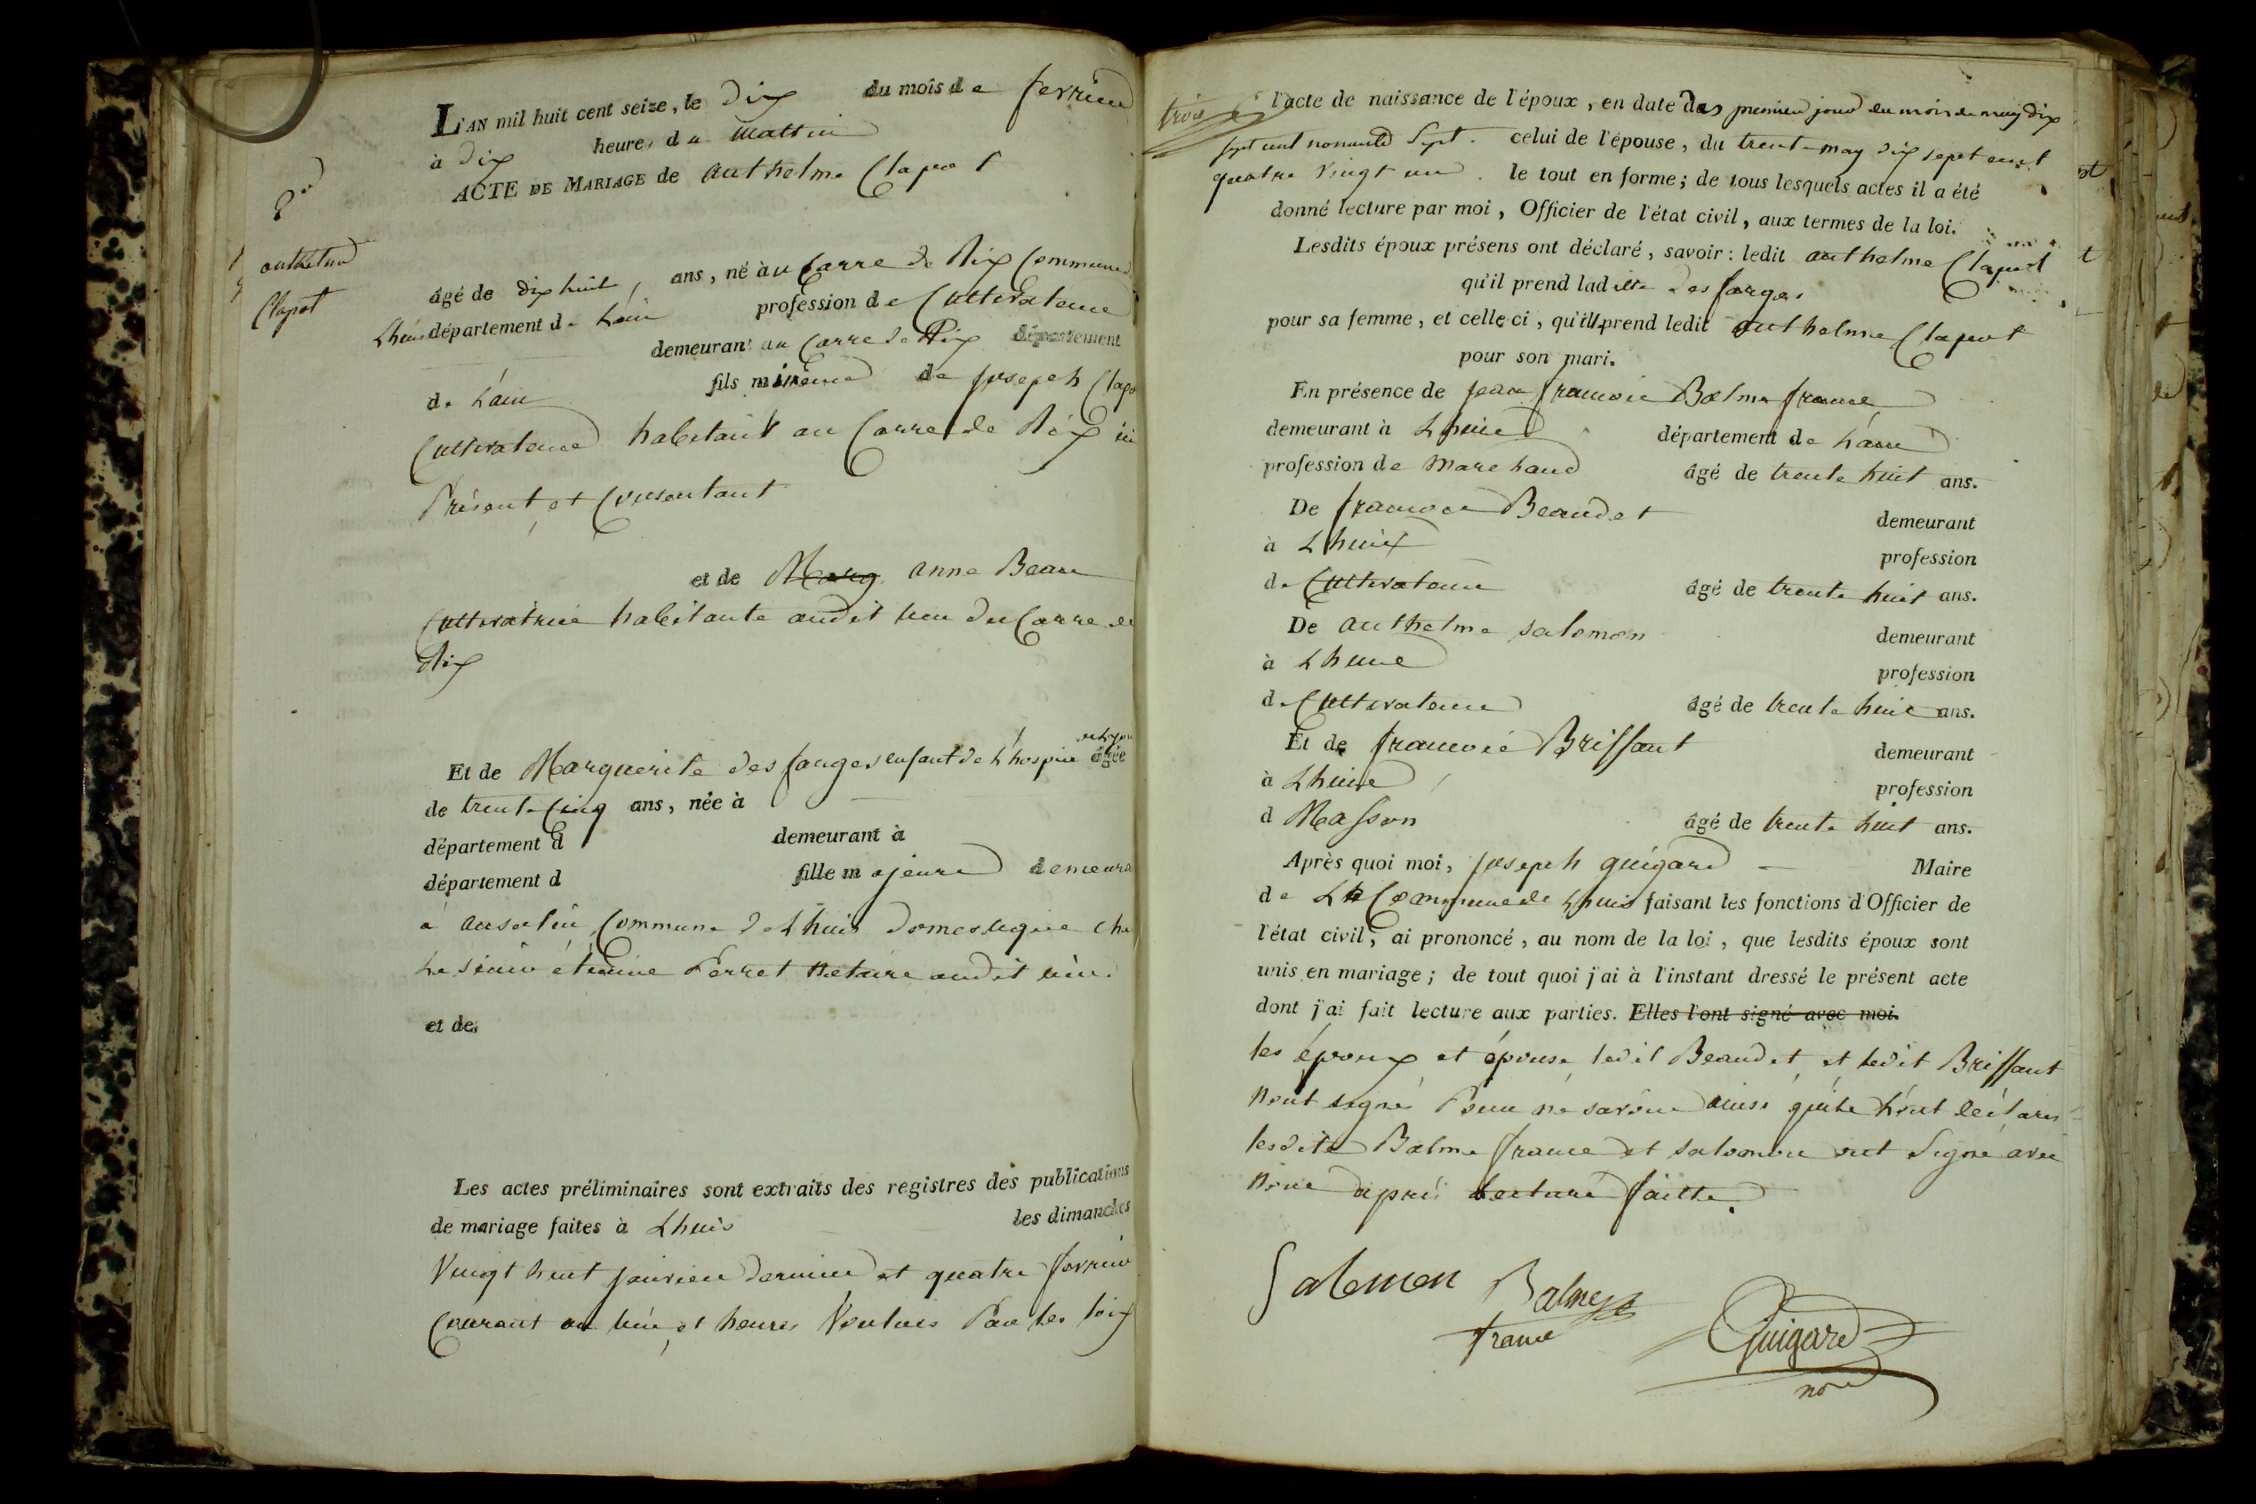 L'AN mil huit cent seize, le dix du mois de fevrier
à dix heures du mattin
ACTE DE MARIAGE de anthelme Clapot
2e
anthelme
Clapot
âgé de dix huit, ans, né au Carre de Rix Commune de
Lhuis département de L'ain profession de Cultivateur
demeurant au Carre de Rix département
de L'ain fils mineur de joseph Clapot
Cultivateur habitant au Carre de Rix ici
Présent, et Consentant
et de Marg anne Beau
Cultivatrice habitante audit lieu du Carre de
Rix
Et de Marguerite des farges enfant de L'hospice de Lyon âgée
de trente Cinq ans, née à
département d demeurant à
département d fille majeure demeurant
à Commune de Lhuis domestique chez
Le sieur étienne Perret Notaire audit lieu.
et de
Les actes préliminaires sont extraits des registres des publications
de mariage faites à Lhuis les dimanches
Vingt huit janvier dernier et quatre fevrier
Courant au lieu, et heures Voulues Par les loix
trois
l'acte de naissance de l'époux, en date des premier jour du mois de may dix
sept cent nonante Sept. celui de l'épouse, du trente may dix sept cent
quatre Vingt un. le tout en forme; de tous lesquels actes il a été
donné lecture par moi, Officier de l'état civil, aux termes de la loi.
Lesdits époux présens ont déclaré, savoir: ledit anthelme Clapot
qu'il prend ladite des farges
pour sa femme, et celle ci, qu'ille prend ledit anthelme Clapot
pour son mari.
En présence de jean françois Balme france
demeurant à Lhuis département de L'ain
profession de Marchand âgé de trente huit ans.
De françois Beaudet demeurant
à Lhuis profession
de Cultivateur âgé de trente huit ans.
De anthelme salomon demeurant
à Lhuis profession
de Cultivateur âgé de trente huit ans.
Et de françois Brissaut demeurant
à Lhuis profession
d Masson âgé de trente huit ans.
Après quoi moi, joseph guigard Maire
de La Commune de Lhuis faisant les fonctions d'Officier de
l'état civil, ai prononcé, au nom de la loi, que lesdits époux sont
unis en mariage; de tout quoi j'ai à l'instant dressé le présent acte
dont j'ai fait lecture aux parties. Elles l'ont signé avec moi.
les époux et épouse, ledit Beaudet, et ledit Brissaut
n'ont signé Pour ne savoir ainsi qu'ils L'ont déclaré
lesdits Balme france et salomon ont Signé avec
Nous après Lecture faitte.
Salomon Balme
france
Guigard